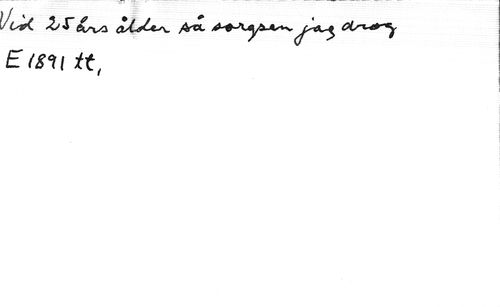 Vid 25 års ålder så sorgsen jag drog
E 1891 tt,